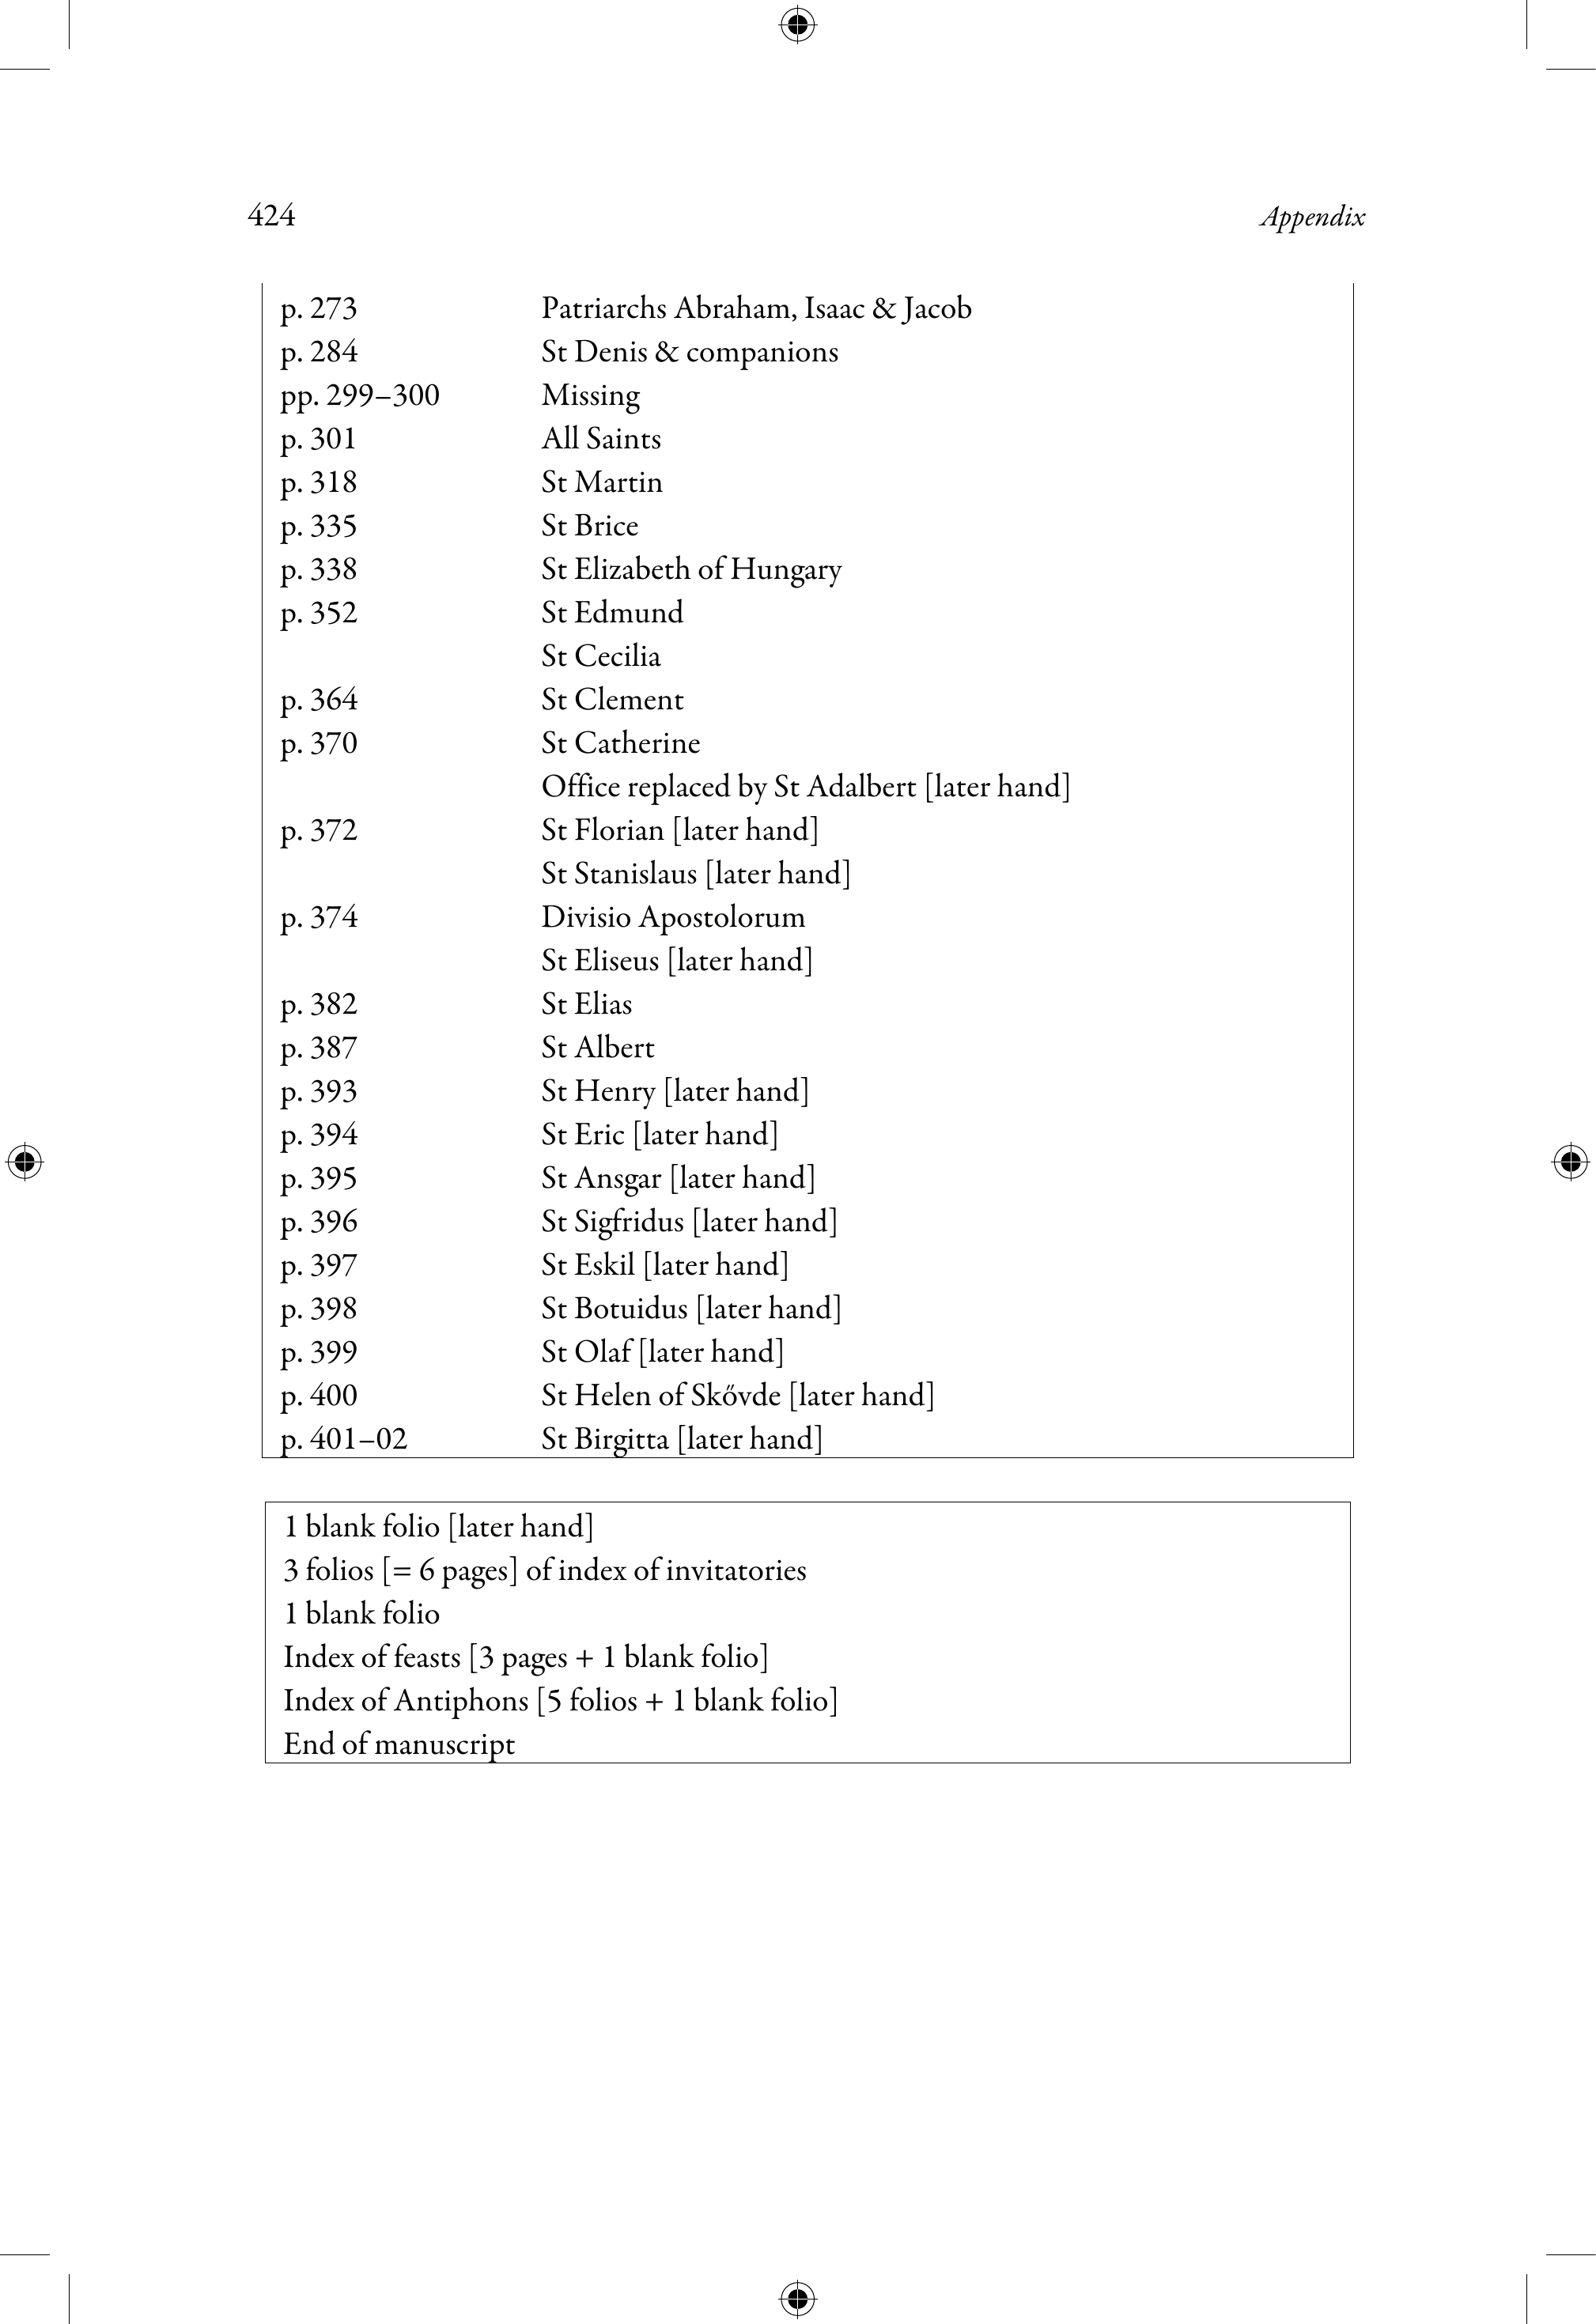 424 Appendix
p. 273 Patriarchs Abraham, Isaac & Jacob
p. 284 St Denis & companions
pp. 299–300 Missing
p. 301 All Saints
p. 318 St Martin
p. 335 St Brice
p. 338 St Elizabeth of Hungary
p. 352 St Edmund
St Cecilia
p. 364 St Clement
p. 370 St Catherine
Office replaced by St Adalbert [later hand]
p. 372 St Florian [later hand]
St Stanislaus [later hand]
p. 374 Divisio Apostolorum
St Eliseus [later hand]
p. 382 St Elias
p. 387 St Albert
p. 393 St Henry [later hand]
p. 394 St Eric [later hand]
p. 395 St Ansgar [later hand]
p. 396 St Sigfridus [later hand]
p. 397 St Eskil [later hand]
p. 398 St Botuidus [later hand]
p. 399 St Olaf [later hand]
p. 400 St Helen of Skővde [later hand]
p. 401–02 St Birgitta [later hand]
1 blank folio [later hand]
3 folios [= 6 pages] of index of invitatories
1 blank folio
Index of feasts [3 pages + 1 blank folio]
Index of Antiphons [5 folios + 1 blank folio]
End of manuscript